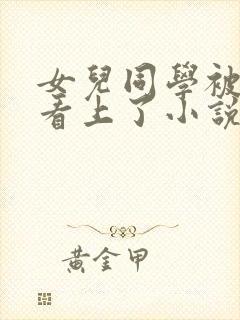 女兒同學被
看上了小說
黃金甲